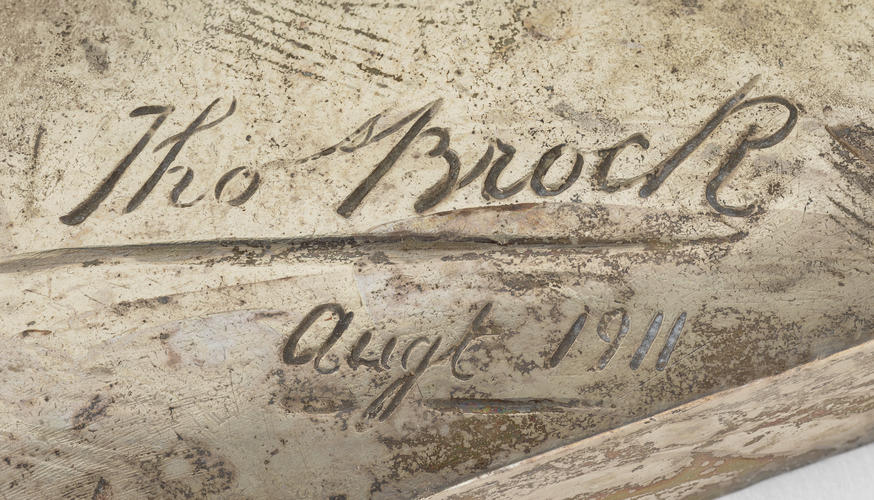 Thos Brock
Augt 1911